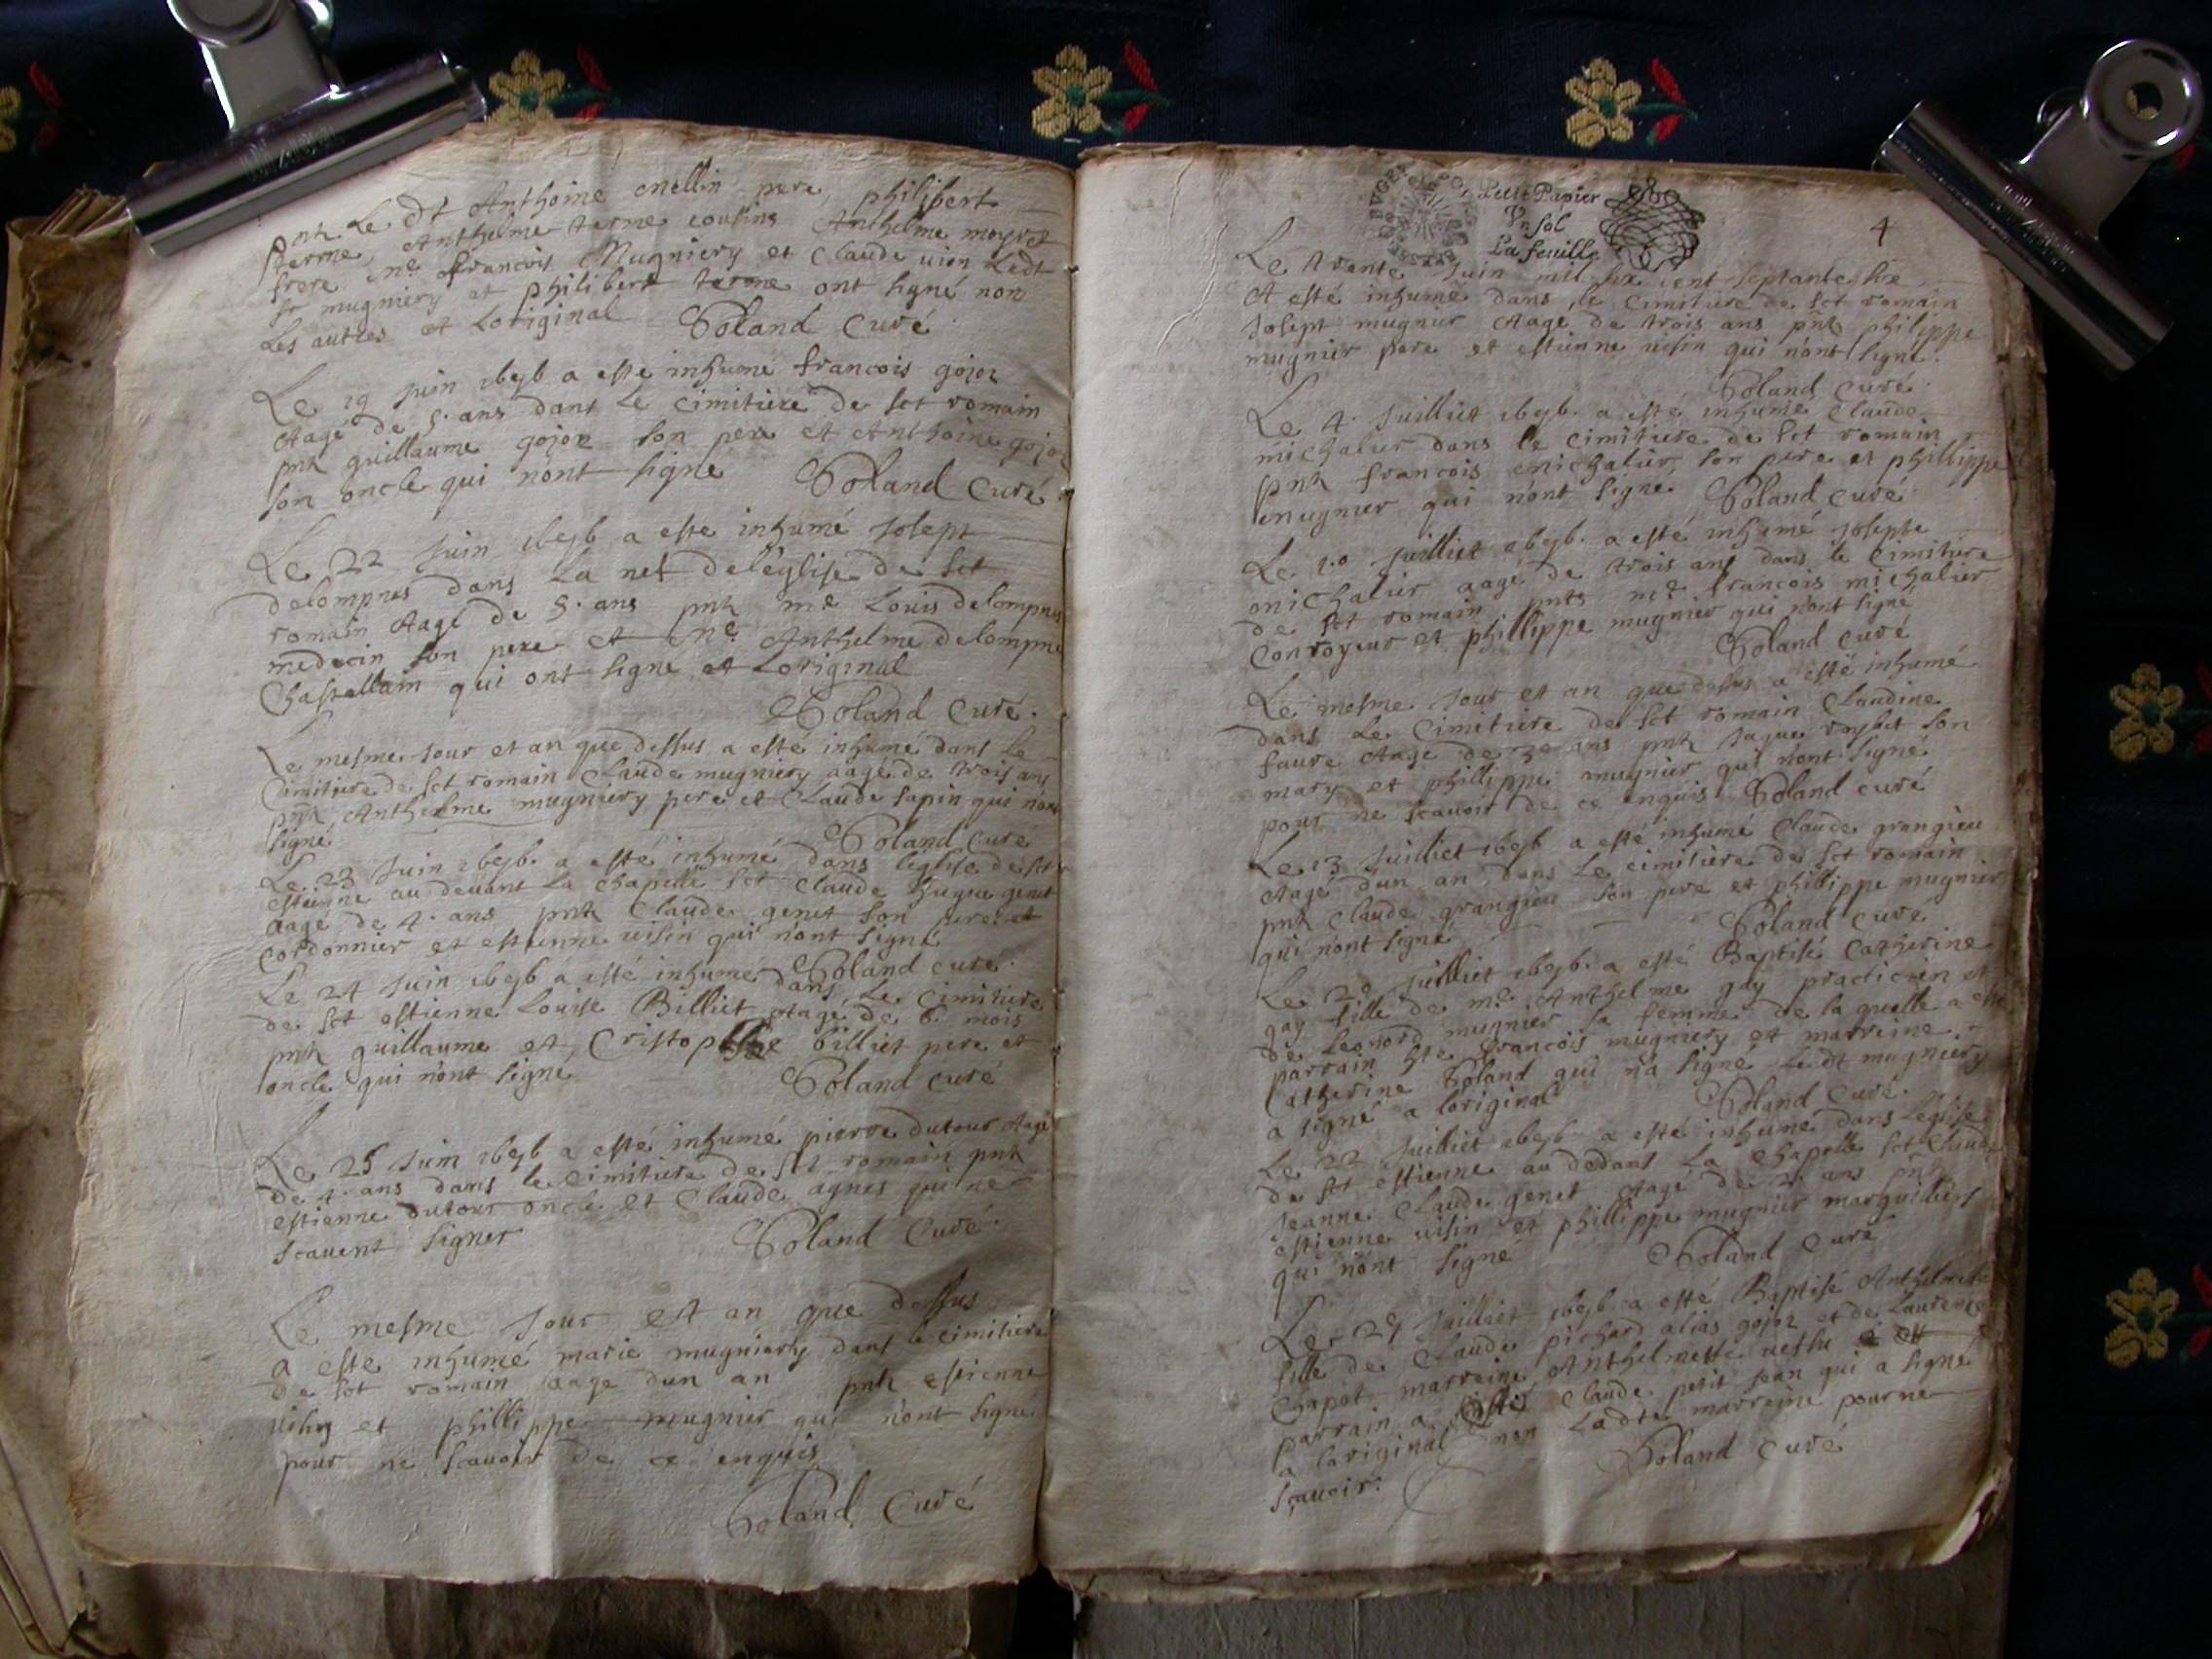 pnt Le dt Anthoine mellin pere, philibert
terme, Anthelme terme cousins Anthelme moyret
frere me francois Mugniery et Claude uion Ledt
sr mugniery et philibert terme ont signé non
Les autres et Loriginal Boland Curé
Le 19 juin 1676 a esté inhumé francois gojon
Aagé de 5. ans dant Le Cimitiere de sct romain
pnt guillaume gojon son pere et Anthoine gojon
son oncle qui nont signé Boland Curé
Le 22 Juin 1676 a este inhumé Josept
delompnes dans La nef de léglise de sct
romain Aagé de 5. ans pnt me Louis delompnes
medecin son pere et me Anthelme delompne
Chastellain qui ont signe et Loriginal
Boland Curé.
Le mesme Jour et an que dessus a esté inhumé dans Le
Cimitiere de sct romain Claude mugniery aagé de trois ans
pnt Anthelme mugniery pere et Claude sapin qui nont
signé Boland Curé
Le 23 Juin 1676. a esté inhumé dans léglise de sct
estienne au deuant La chapelle sct Claude genet
aagé de 4. ans pnt Claude genet son pere et
cordonnier et estienne uisin qui n'ont signé
Le 24 Juin 1676 a esté inhumé dans Boland curé.
de sct estienne Louise Billiet Aagé de 6. mois Le Cimitiere
pnt guillaume et Cristophe billiet pere et
oncle qui n'ont signe Boland curé
Le 25 Juin 1676 a esté inhumé pierre dutour Aagé
de 4. ans dans le Cimitiere de sct romain pnt
estienne dutour oncle et Claude agnes qui ne
scauent signer Boland Curé.
Le mesme Jour est an que dessus
a este inhumé marie mugniery dans le Cimitiere
de sct romain aage dun an pnt estienne
uisin et phillippe mugnier qui n'ont signé
pour ne scauoir de ce enquis
Boland Curé
Petit Papier
Vn sol
La feuille
4
Le trente Juin mil six cent septante six
A esté inhumé dans le Cimitiere de sct romain
Josept mugnier Aagé de trois ans pnt philippe
mugnier pere et estienne uisin qui n'ont signé.
Boland Curé.
Le 4. Juilliet 1676. a esté inhumé Claude
michalier dans le Cimitiere de sct romain
pnt francois michalier son pere et phillippe
mugnier qui n'ont signe. Boland curé
Le 10 Juilliet 1676. a esté inhumé Josepte
michalier aagé de trois ans dans le Cimitiere
de sct romain pnts me francois michalier
Conroyeur et phillippe mugnier qui n'ont signé
Boland Curé
Le mesme Jour et an que dessus a esté inhumé
dans Le Cimitiere de sct romain Claudine
faure Aage de 30 ans pnt Jaque son
mary et phillippe mugnier qui n'ont signé
pour ne scauoir de ce enquis Boland curé
Le 13 Juilliet 1676 a esté inhumé Claude grangieu
Aagé dun an dans Le cimitiere de sct romain
pnt Claude grangieu son pere et phillippe mugnier
qui nont signé Boland Curé
Le 20 Juilliet 1676. a esté Baptisé Catherine
gay fille de me Anthelme gay practicien et
de Leonord mugnier sa femme de la quelle a esté
parrain francois mugniery et marreine
Catherine Boland qui n'a signé Ledt mugniery
a signé a loriginal Boland Curé.
Le 22 Juilliet 1676 a esté inhumé dans L'église
de sct estienne au dedans La Chapelle sct Claude
Jeanne Claude genet Aagé de 2 ans pnt
estienne uisin et phillippe mugnier marguilliers
qui n'ont signé Boland Curé
Le 29 Juilliet 1676 a esté Baptisé Anthelmette
fille de Claude pichard alias gojon et de Laurence
Chapot marreine Anthelmette uestu
parrain a Claude petit Jean qui a signé
a loriginal non Ladte marreine pour ne
scauoir. Boland curé